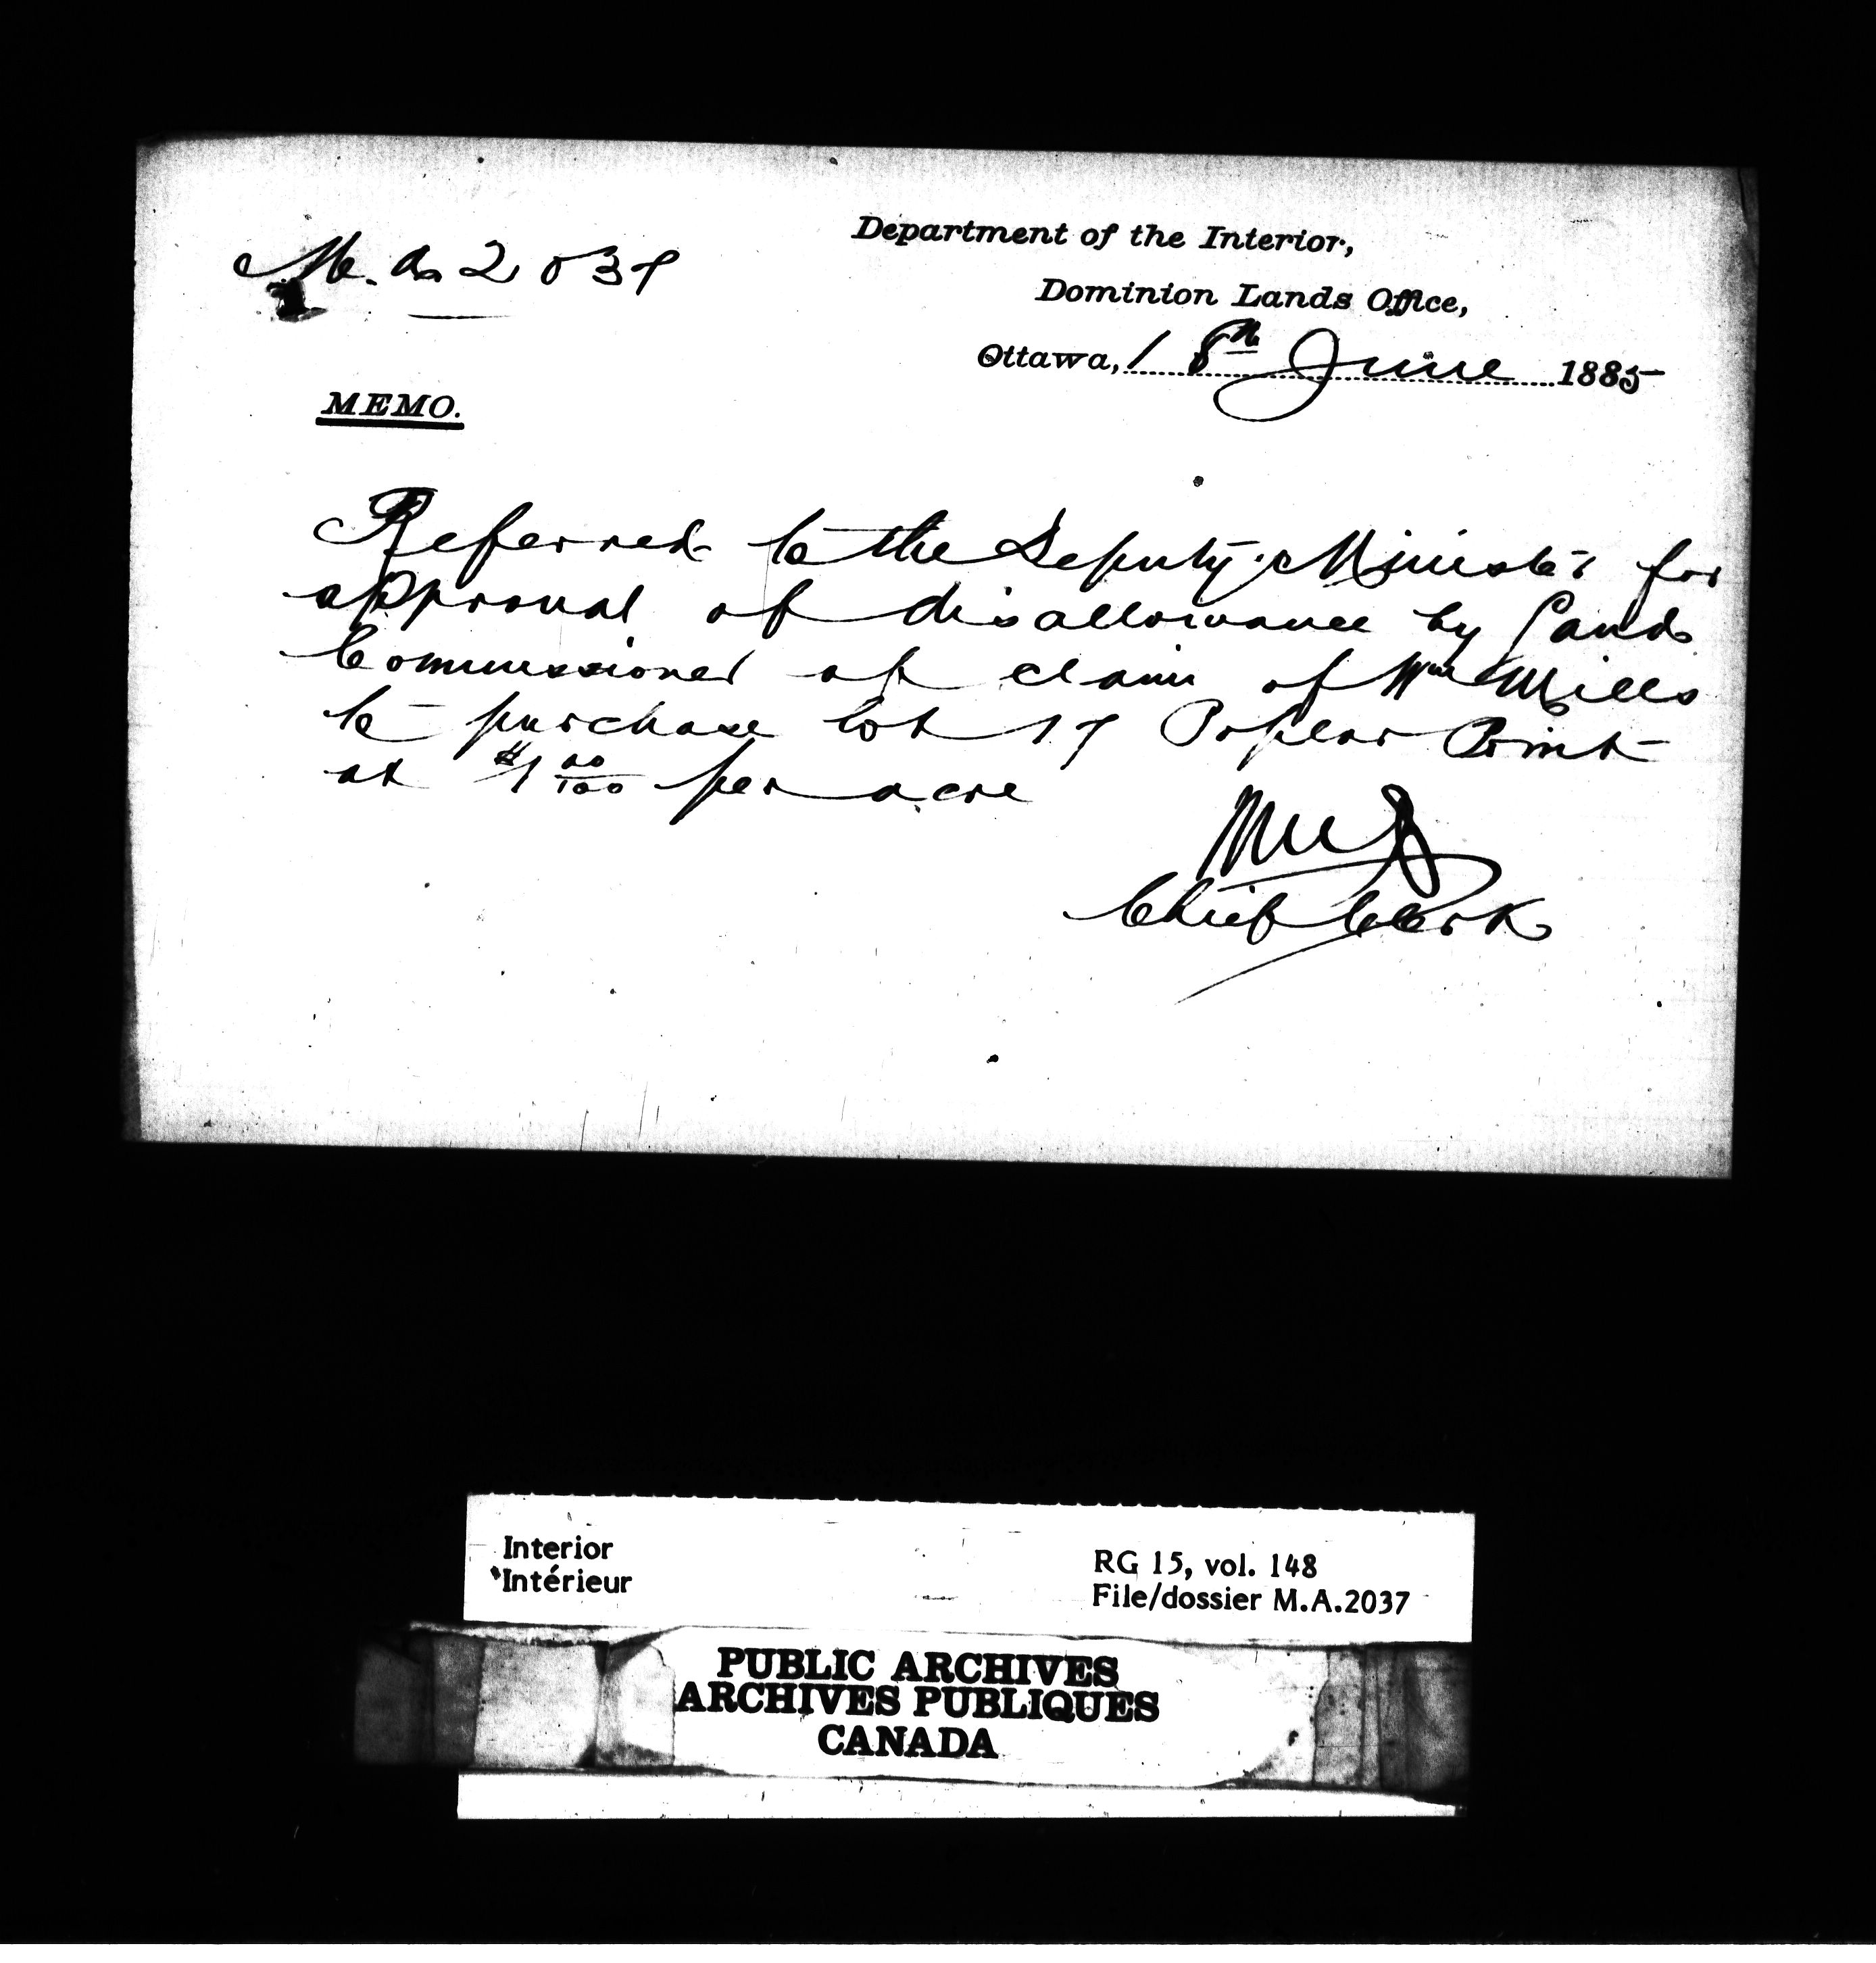 M. A. 2037
Department of the Interior,
Dominion Lands Office,
Ottawa, 18th June 1885
MEMO.
Referred to the Deputy Minister for
approval of disallowance by Lands
Commissioner of claim of Wm Mills
to purchase lot 17 Poplar Point
at $1 00/100 per acre
Chief Clerk
Interior
Intérieur
RG 15, vol. 148
File/dossier M.A.2037
PUBLIC ARCHIVES
ARCHIVES PUBLIQUES
CANADA